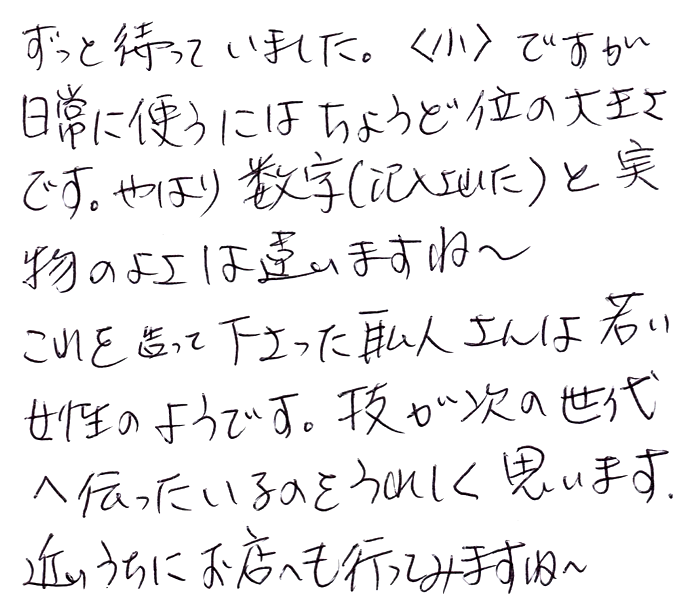 ずっと待っていました。〈小〉ですが
日常に使うにはちょうど位の大きさ
です。やはり数字(記入された)と実
物のよさは違いますね〜
これを造って下さった職人さんは若い
女性のようです。技が次の世代
へ伝わっているのをうれしく思います.
近いうちにお店へも行ってみますね〜